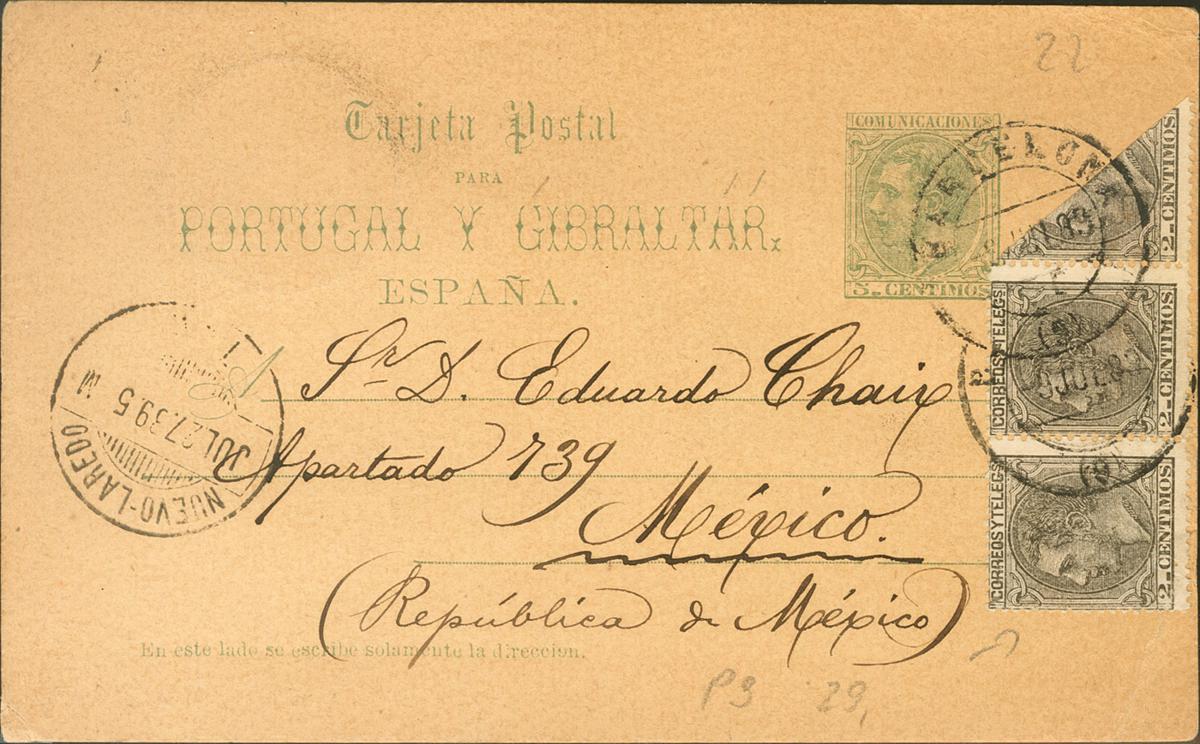 22
Tarjeta Postal
PARA
PORTUGAL Y GIBRALTAR.
ESPAÑA.
COMUNICACIONES
5_ CENTIMOS
2_ CENTIMOS
BARCELONA
CORREOS Y TELEGS
2_ CENTIMOS
CORREOS Y TELEGS
2_ CENTIMOS
Sr. D. Eduardo Chaix
Apartado 739
México.
(República de México)
NUEVO-LAREDO
JUL 27
5 M
En este lado se escribe solamente la direccion.
P3 29,